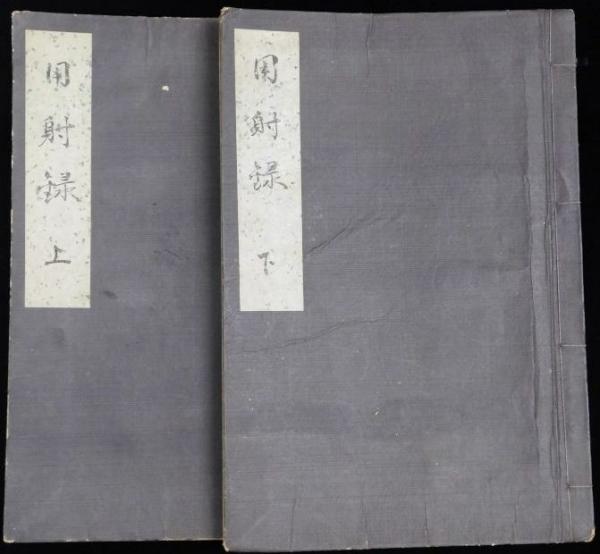 用射録 上
用射録 下